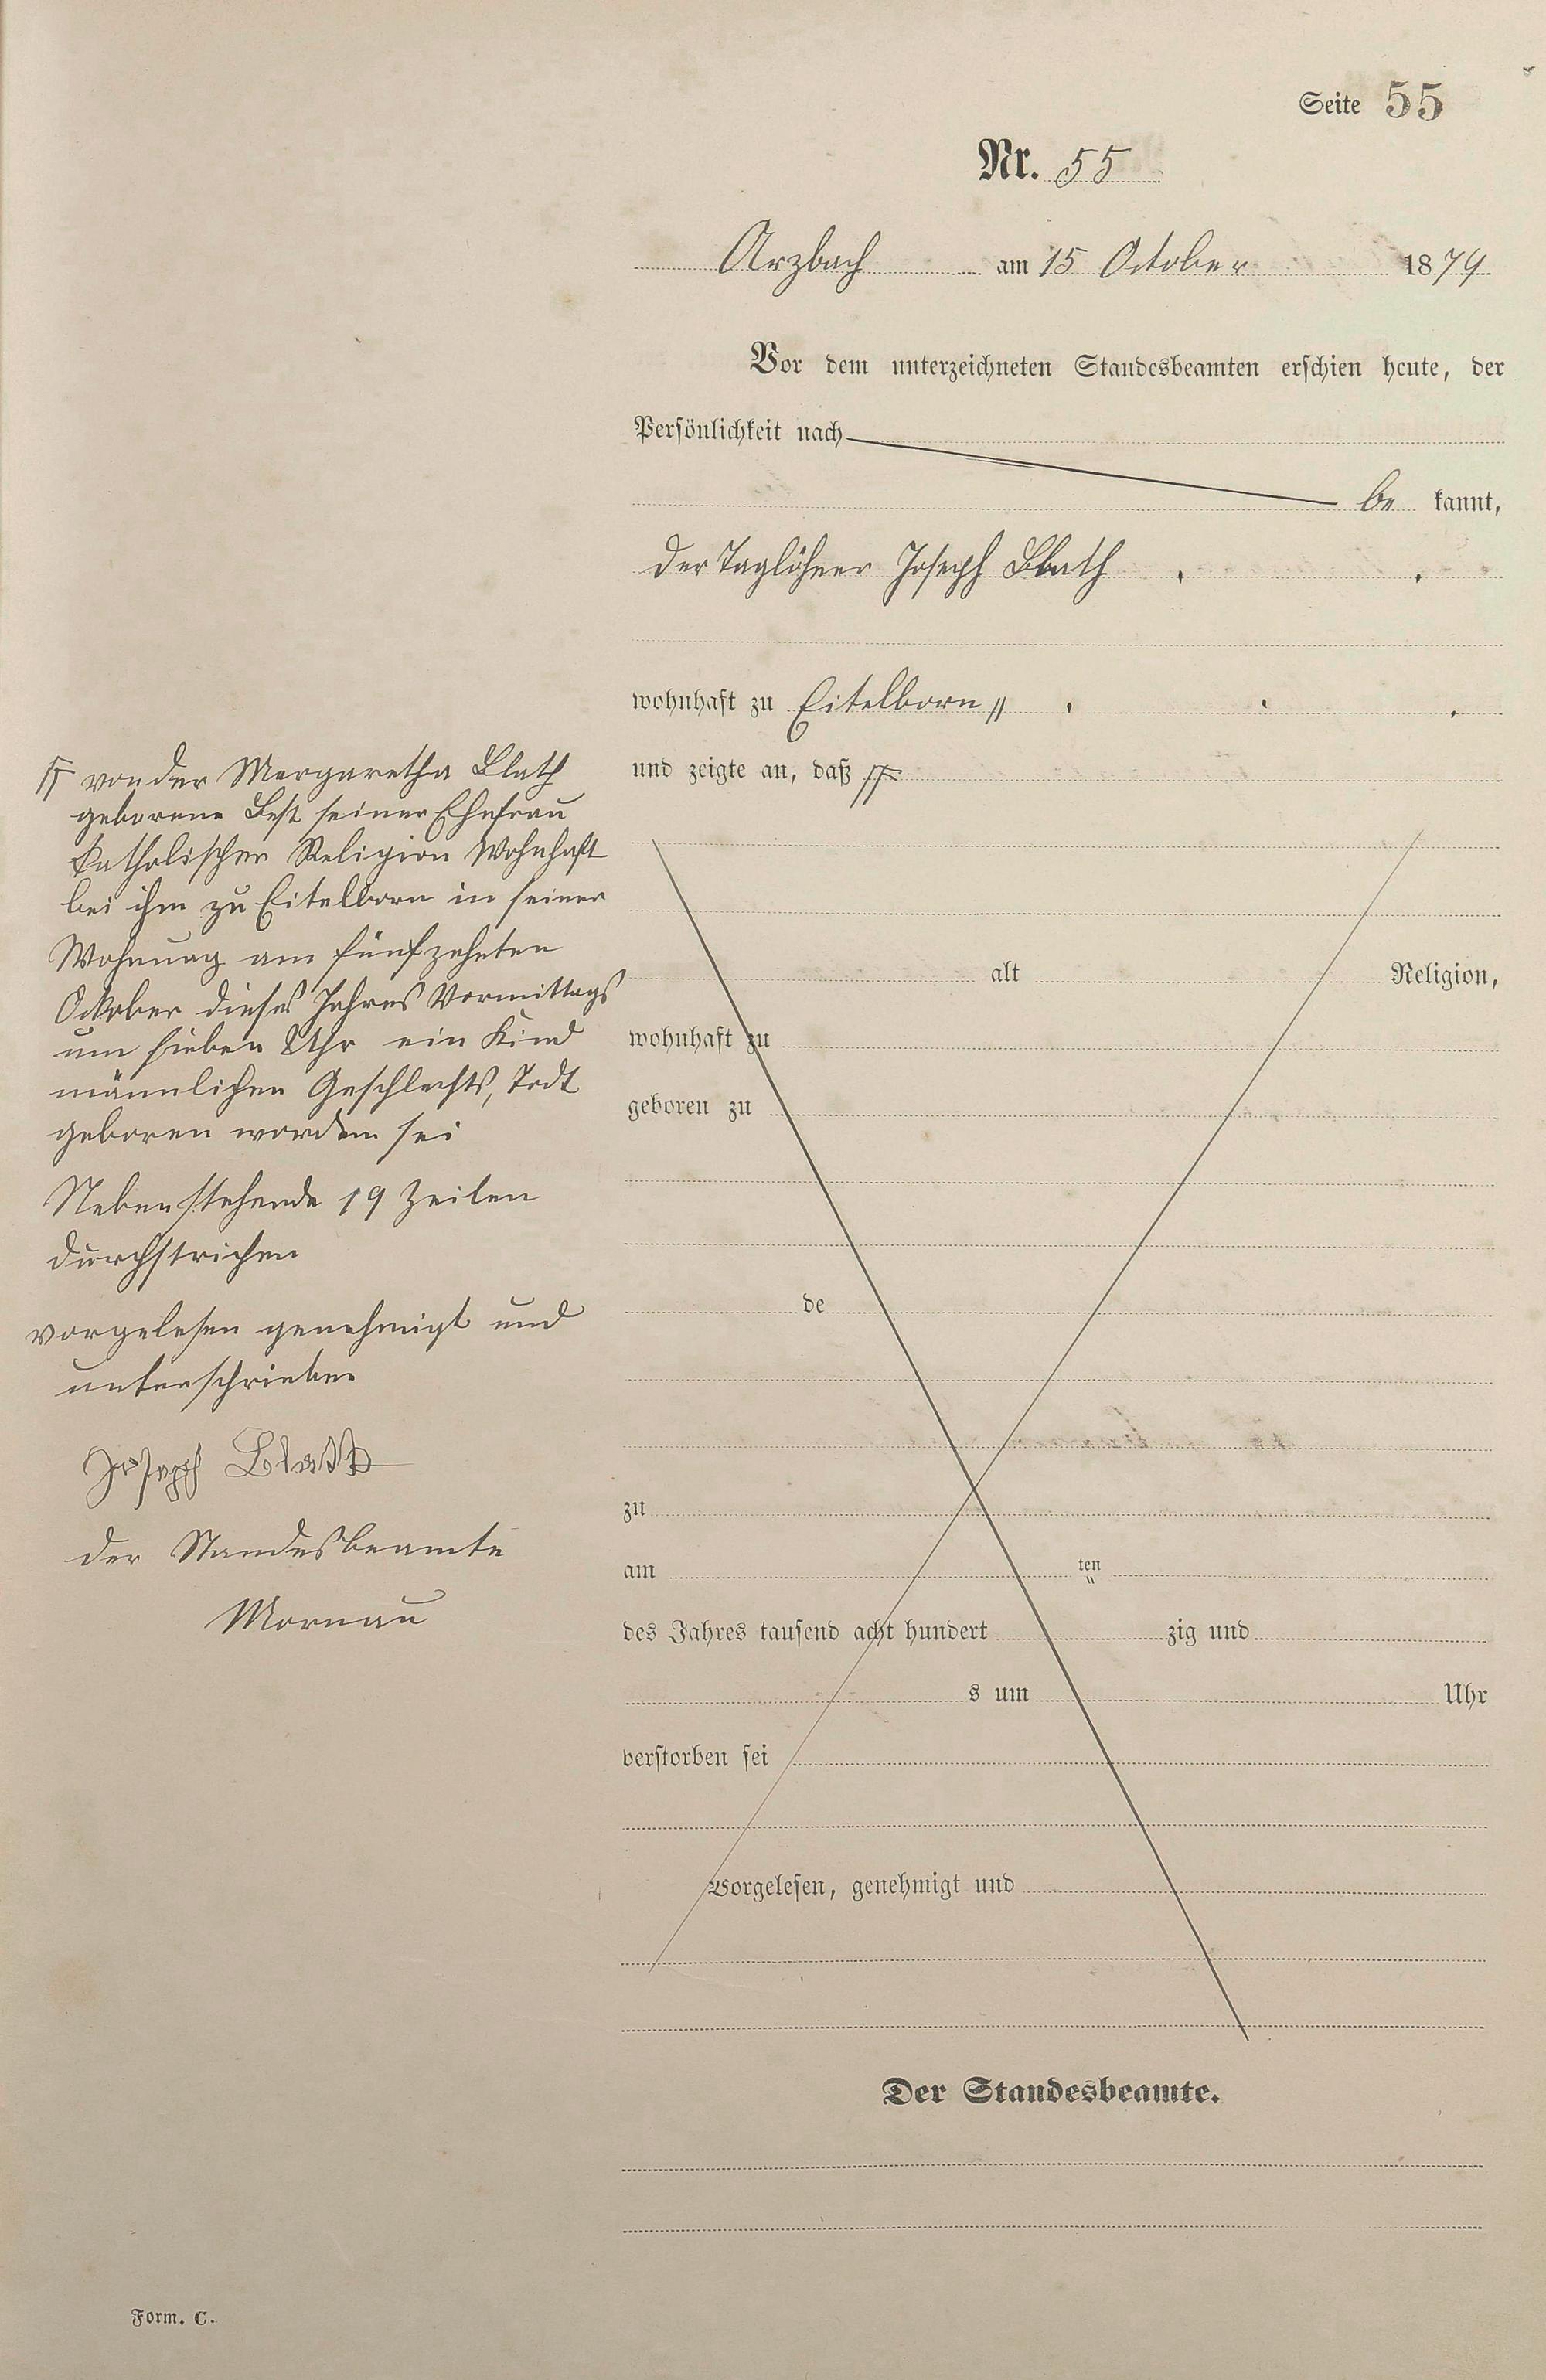 Seite 55
Nr. 55
Arzbach am 15 October 1879
Vor dem unterzeichneten Standesbeamten erschien heute, der
Persönlichkeit nach
be kannt,
der Taglöhner Joseph Blath
wohnhaft zu Eitelborn
und zeigte an, daß
von der Margaretha Blath
geborene Best seiner Ehefrau
katholischer Religion Wohnhaft
bei ihm zu Eitelborn in seiner
Wohnung am fünfzehnten
October dieses Jahres Vormittags
um sieben Uhr ein Kind
männlichen Geschlechts, Todt
geboren worden sei
Nebenstehende 19 Zeilen
durchstrichen
vorgelesen genehmigt und
unterschrieben
Joseph Blath
der Standesbeamte
Mornau
alt Religion,
wohnhaft zu
geboren zu
de
zu
am ten
des Jahres tausend acht hundert zig und
s um Uhr
verstorben sei
Vorgelesen, genehmigt und
Der Standesbeamte.
Form. C.